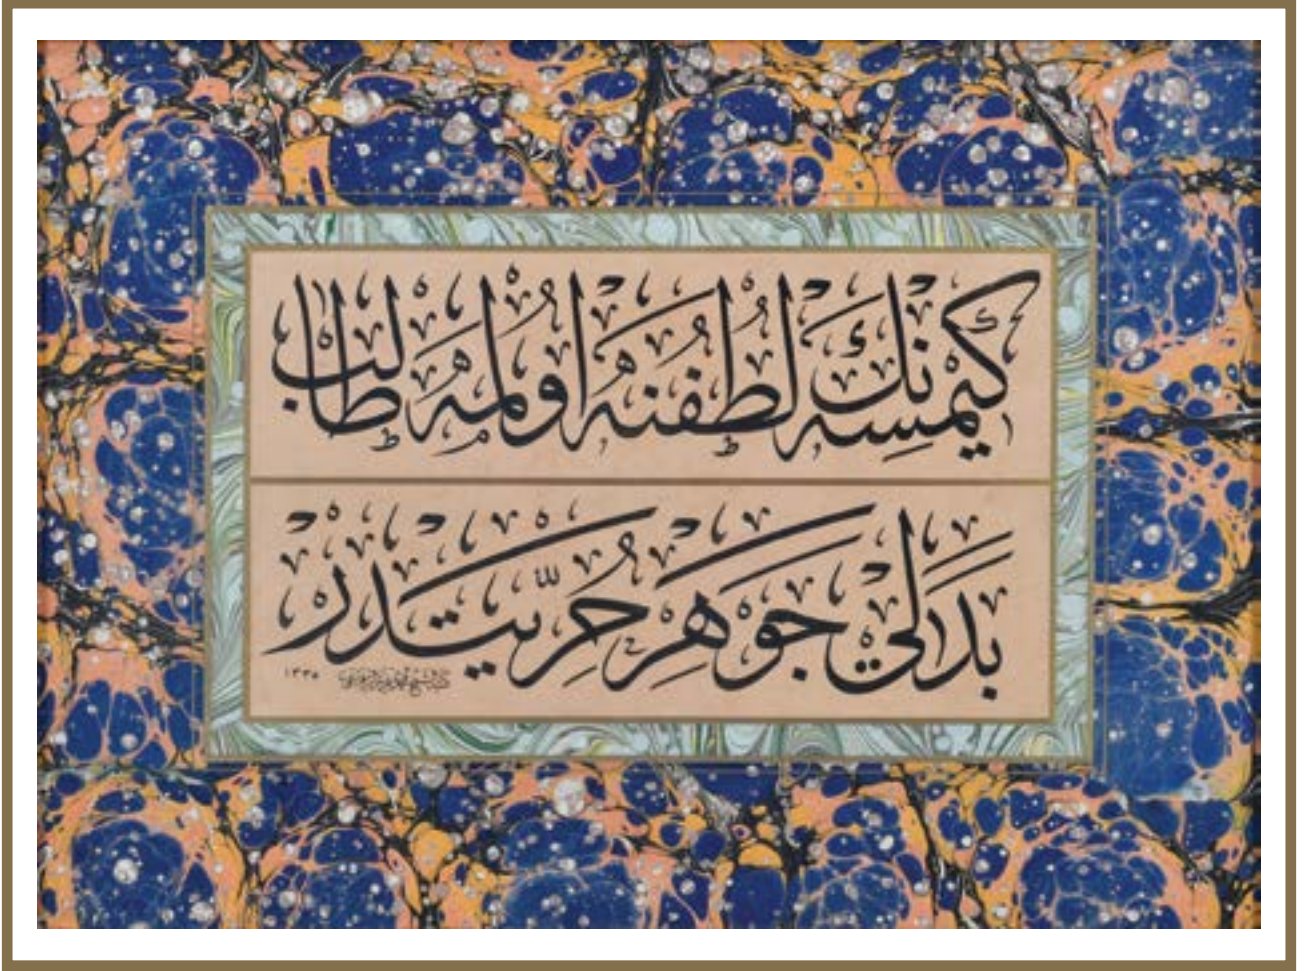 كیمسه‌نك لطفنه اولمه طالب
بدلی جوهر حرّیتدر
١٣٣٥